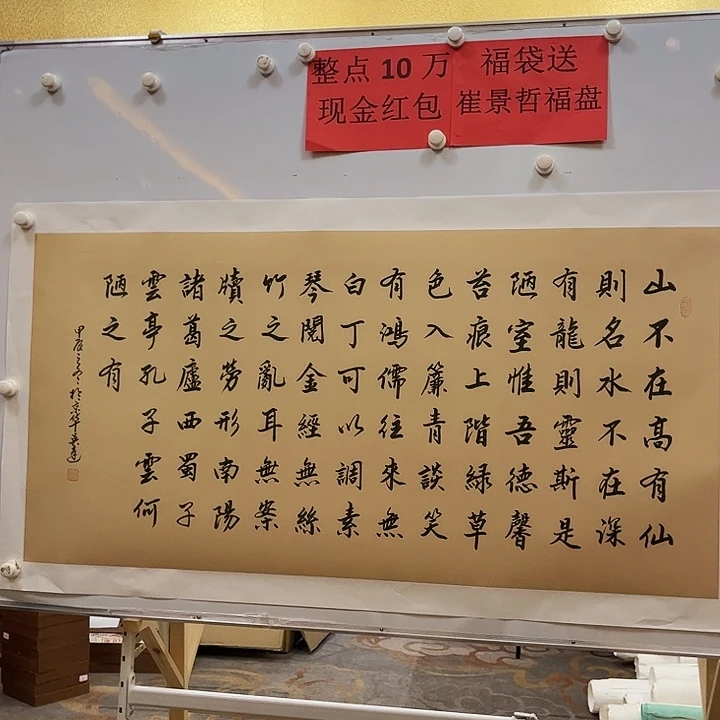 整点10万
现金红包
福袋送
崔景哲福盘
山不在高有仙
則名水不在深
有龍則靈斯是
陋室惟吾德馨
苔痕上階緑草
色入簾青談笑
有鴻儒往來無
白丁可以調素
琴閱金經無絲
竹之亂耳無案
牘之勞形南陽
諸葛廬西蜀子
雲亭孔子雲何
陋之有
甲辰之冬於京華